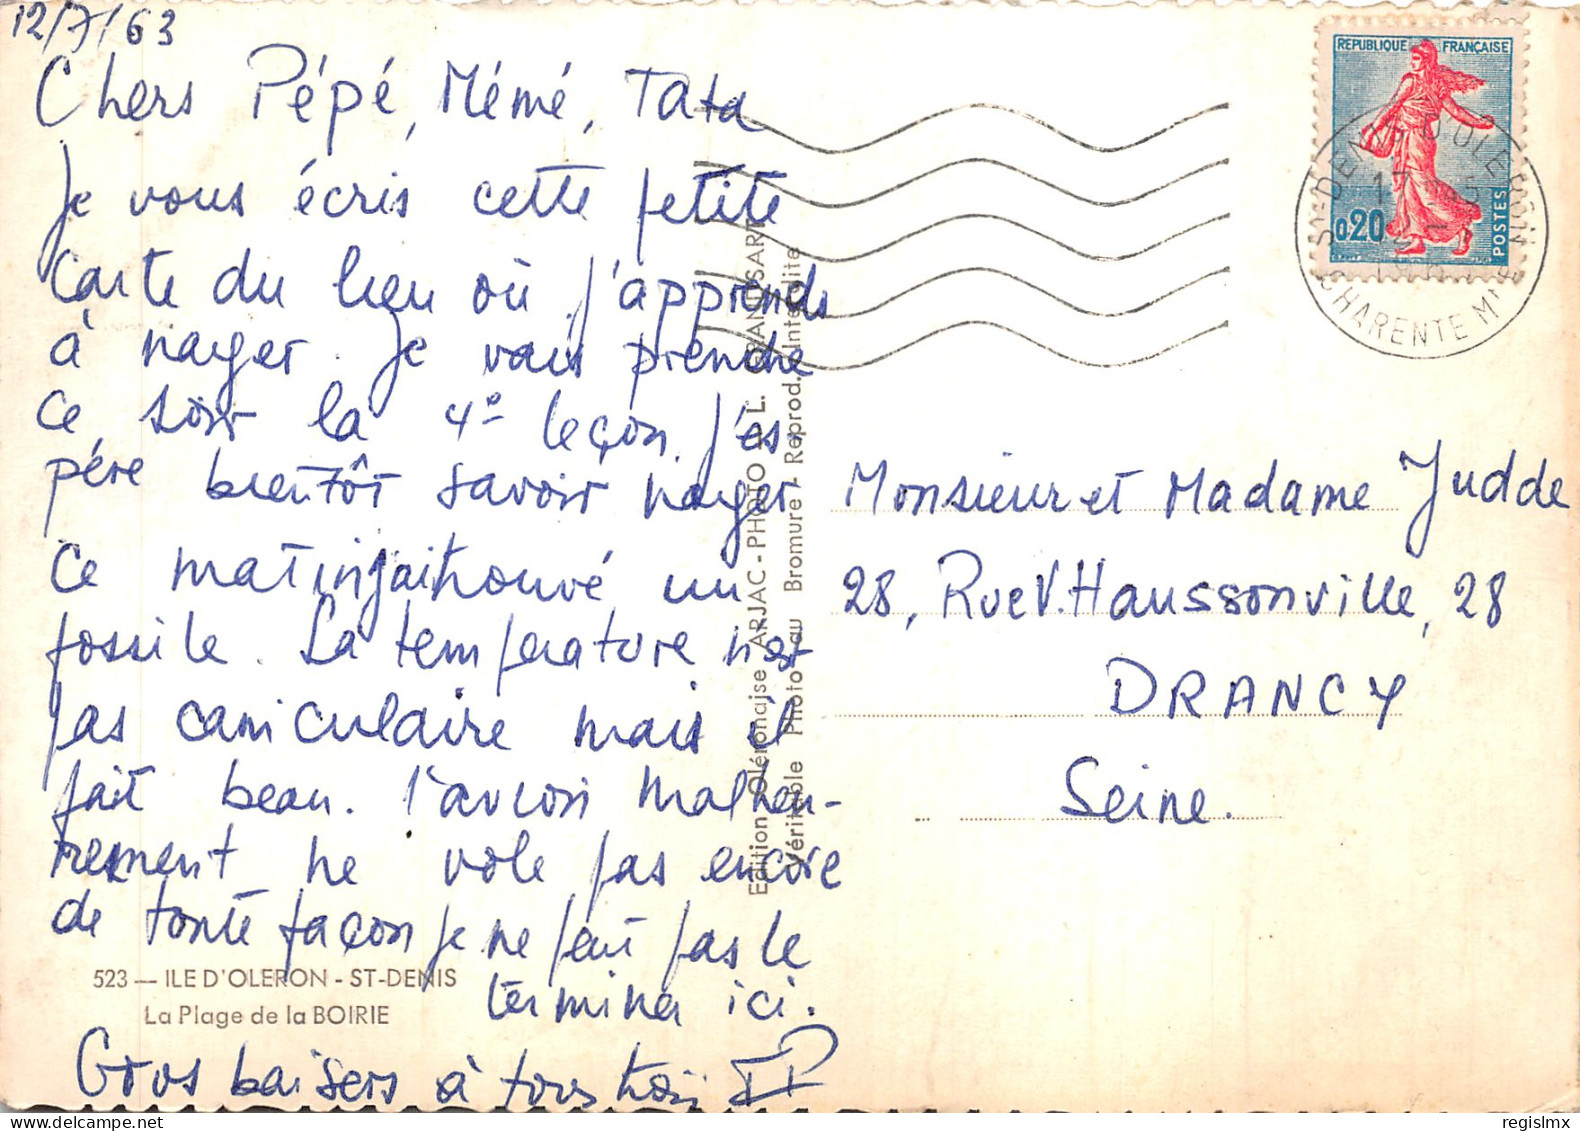 12/7/63
Chers Pépé, Mémé, Tata
Je vous écris cette petite
carte du lieu où j'apprends
à nager. Je vais prendre
ce soir la 4e leçon. J'es-
père bientôt savoir nager
Ce matin j'ai trouvé un
fossile. La température n'est
pas caniculaire mais il
fait beau. l'avion malheu-
resment ne vole pas encore
de toute façon je ne peut pas le
terminer ici.
Gros baisers à tous trois
523 — ILE D'OLERON - ST-DENIS
La Plage de la BOIRIE
Edition Oléronaise ARJAC - PHOTO
Véritable Photo au Bromure / Reprod. Interdite
REPUBLIQUE FRANÇAISE
0,20
POSTES
ST-DENIS D'OLERON
17
CHARENTE MME
Monsieur et Madame Judde
28, Rue V. Haussonville, 28
DRANCY
Seine.
regislmx